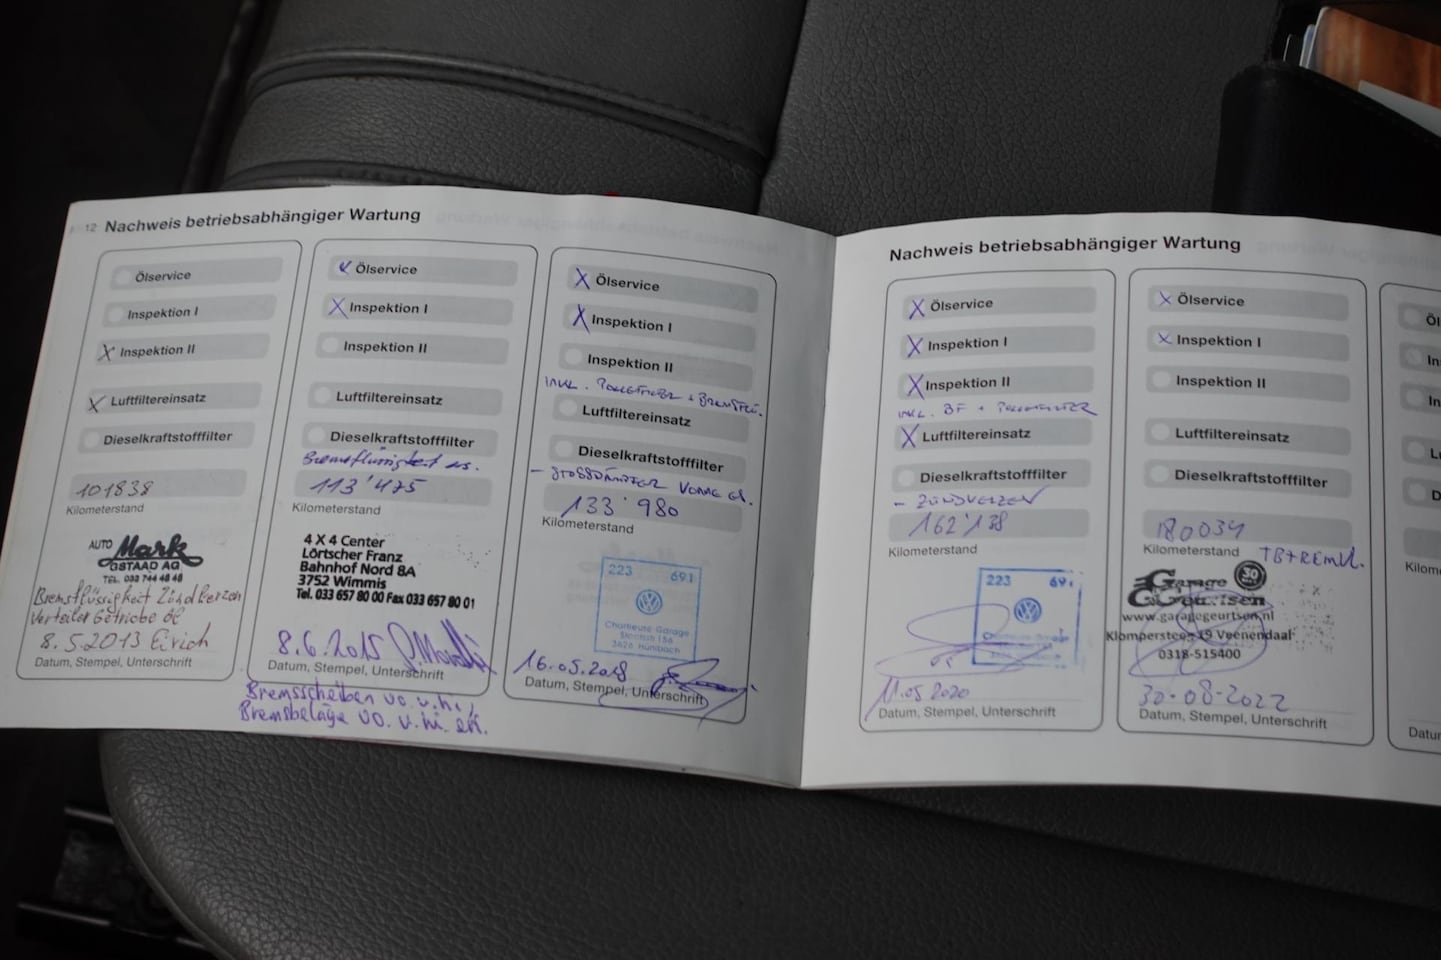 12 Nachweis betriebsabhängiger Wartung
Ölservice
Inspektion I
X Inspektion II
X Luftfiltereinsatz
Dieselkraftstofffilter
101838
Kilometerstand
AUTO Mark
GSTAAD AG
TEL. 033 744 48 48
Bremsflüssigkeit Zündkerzen
Verteiler Getriebe öl
8.5.2013 Eirich
Datum, Stempel, Unterschrift
Ölservice
X Inspektion I
Inspektion II
Luftfiltereinsatz
Dieselkraftstofffilter
Bremsflüssigkeit es.
113'475
Kilometerstand
4 X 4 Center
Lörtscher Franz
Bahnhof Nord 8A
3752 Wimmis
Tel. 033 657 80 00 Fax 033 657 80 01
8.6.2015
Datum, Stempel, Unterschrift
Bremsscheiben vo. u. hi,
Bremsbeläge vo. u. hi. ers.
X Ölservice
X Inspektion I
Inspektion II
INKL. POLLENFILTER + BREMSFLÜ.
Luftfiltereinsatz
Dieselkraftstofffilter
- STOSSDÄMPFER VORNE
133'980
Kilometerstand
223 691
Chartreuse Garage
Staatsstr. 156
3626 Hünibach
16.05.2018
Datum, Stempel, Unterschrift
Nachweis betriebsabhängiger Wartung
X Ölservice
X Inspektion I
X Inspektion II
INKL. BF + POLLENFILTER
X Luftfiltereinsatz
Dieselkraftstofffilter
- ZÜNDKERZEN
162'138
Kilometerstand
223 691
Chartreuse Garage
11.05.2020
Datum, Stempel, Unterschrift
X Ölservice
X Inspektion I
Inspektion II
Luftfiltereinsatz
Dieselkraftstofffilter
180034
Kilometerstand TB+REMVL.
Garage 30
Geurtsen
www.garagegeurtsen.nl
Klompersteeg 19 Veenendaal
0318-515400
30-08-2022
Datum, Stempel, Unterschrift
Öl
In
In
Lu
D
Kilom
Datur